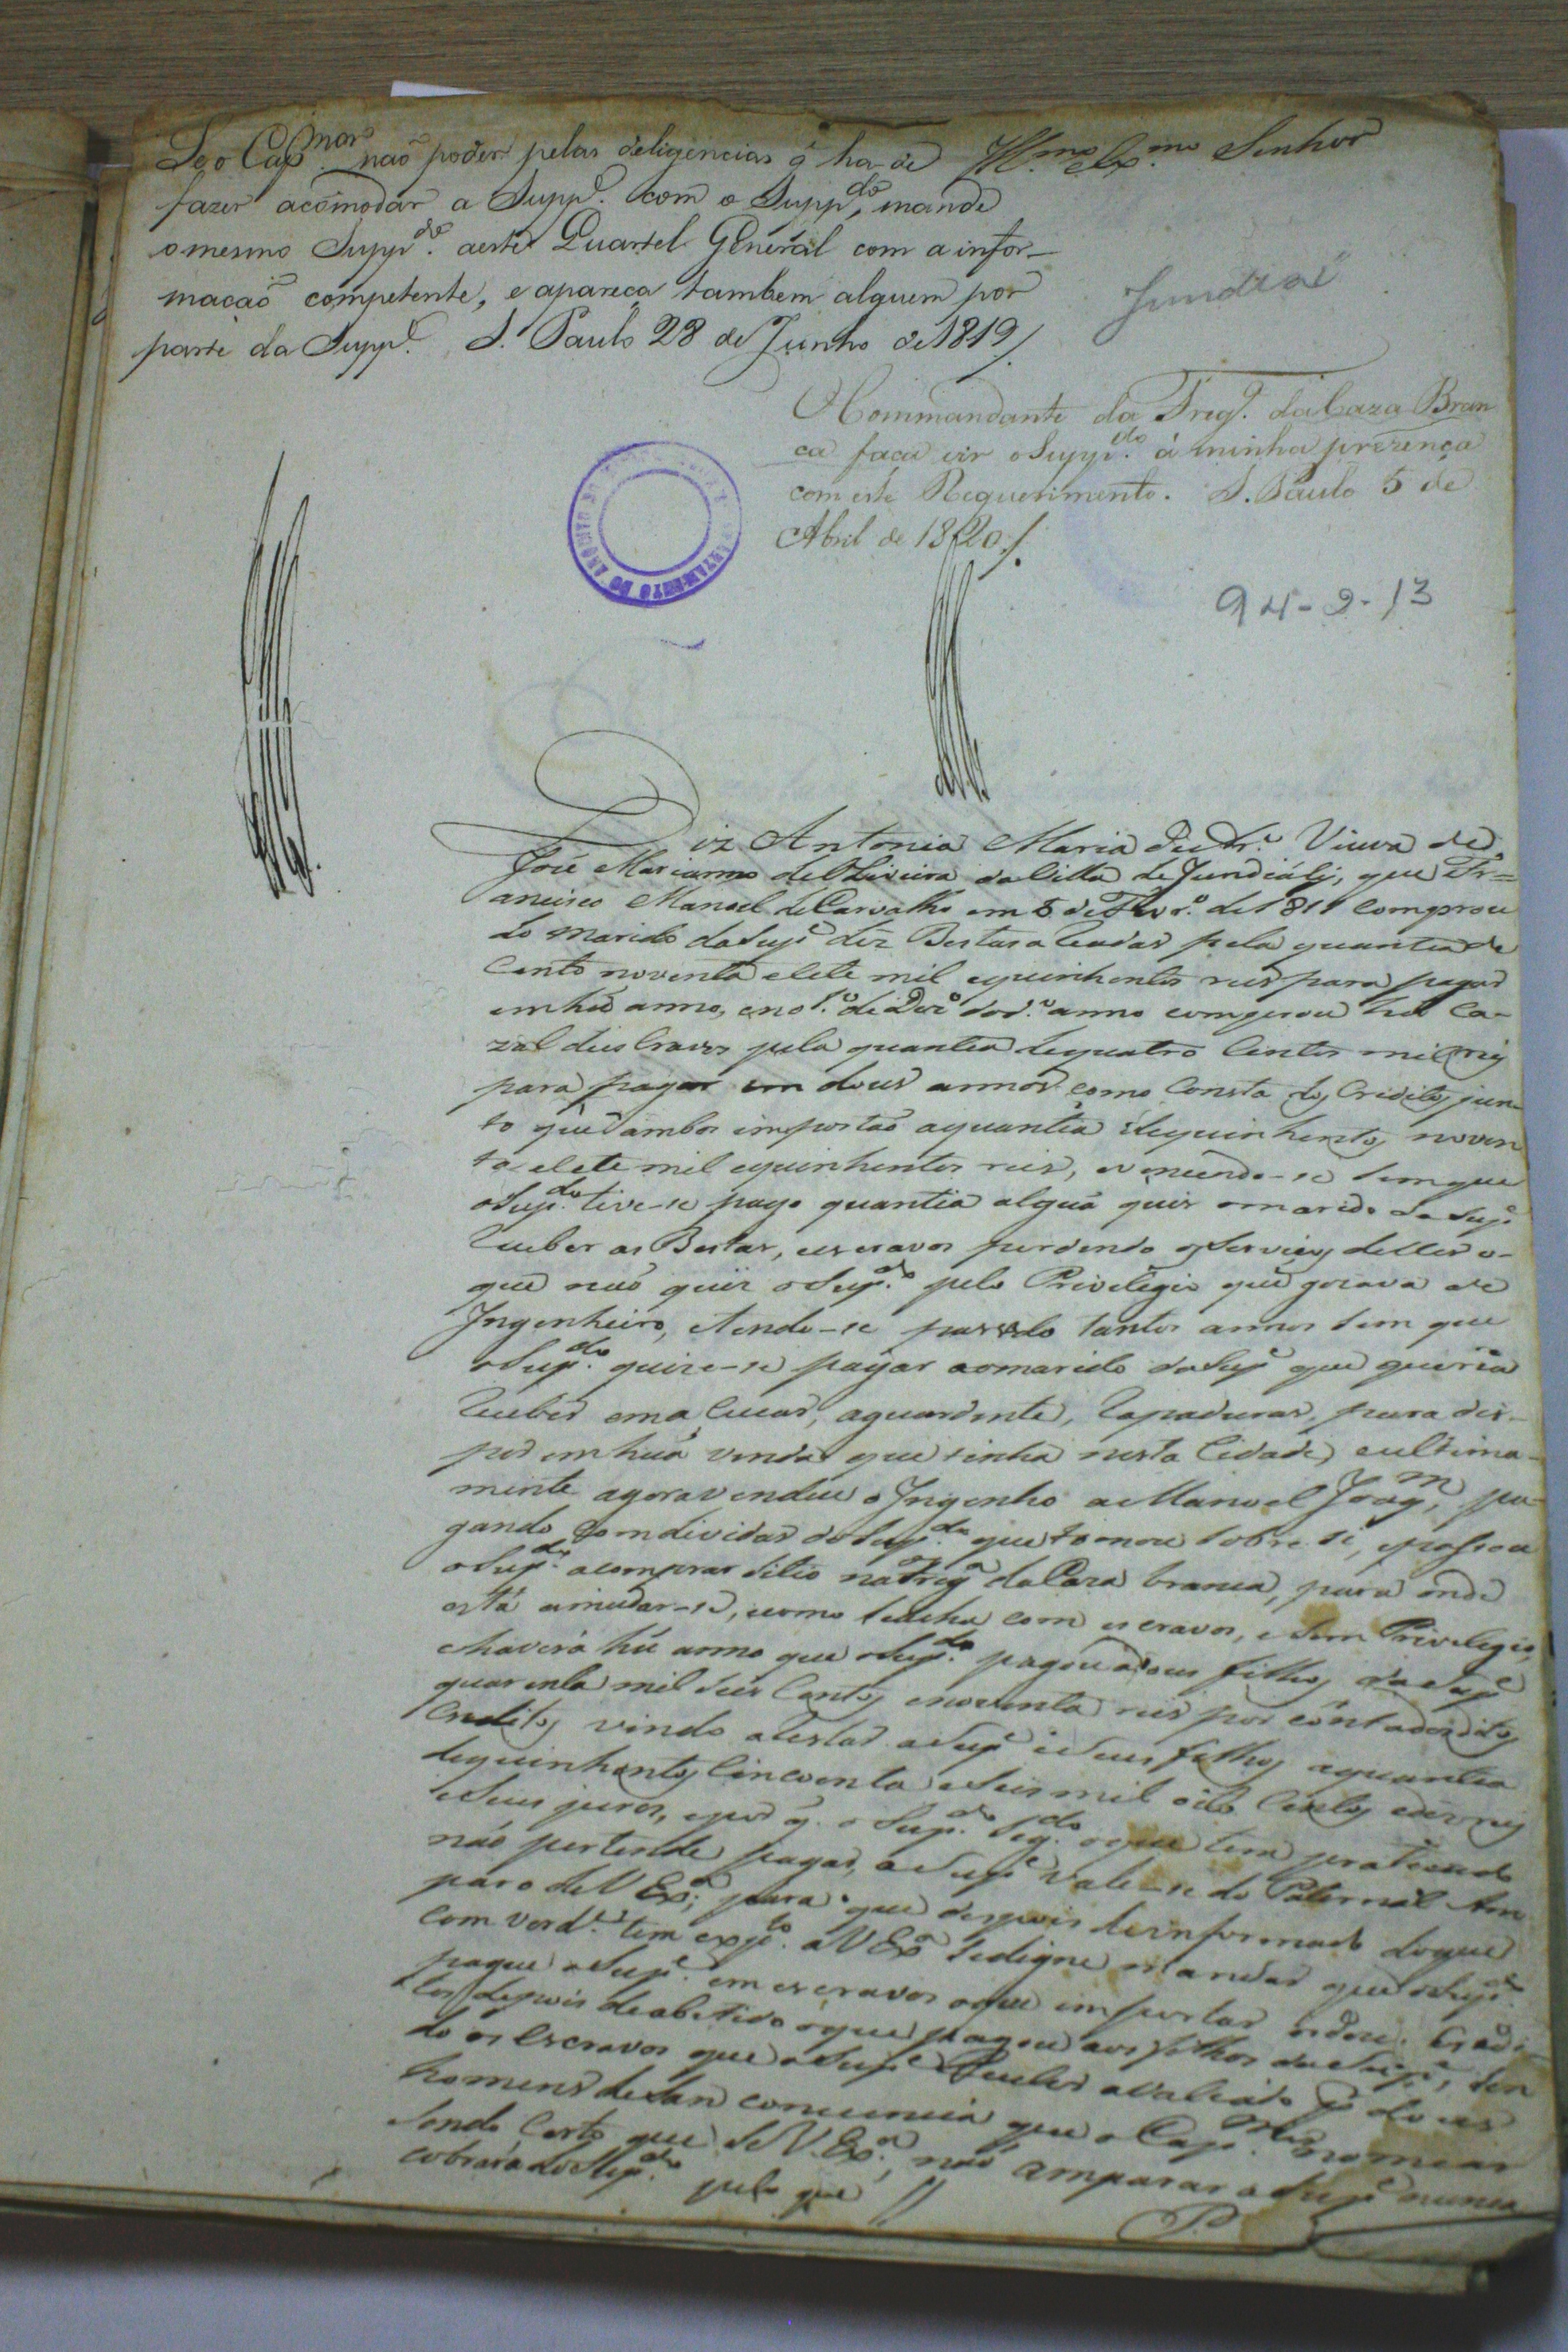 Se o Cap.mor naõ poder pelas deligencias q̃ ha de
fazer acõmodar a Supp.e com o Supp.do, mande
o mesmo Supp.do aeste Quartel General com a infor-
maçaõ competente, e apareça tambem alguem por
parte da Supp.e S. Paulo 28 de Junho de 1819/.
Ill.mo e Ex.mo Senhor
Jundiaí
O Commandante da Freg.a da Caza Bran
ca faça vir o Supp.do á minha prezença
com este Requerimento. S. Paulo 5 de
Abril de 1820/.
94-2-13
Diz Antonia Maria Viuva de
José Marianno de Oliveira da Villa de Jundiahÿ, que Fr=
ancisco Manoel de Carvalho em 5 de de 1811 comprou
do marido da Sup.e déz Bestas pela quantia de
Cento noventa e Sete mil equinhentos reis para pagar
em hũ anno, e no 1.o de Dez.o do d.o anno comprou hũ Ca-
zal deis Cravos pela quantia dequatro Centos mil reis
para pagar em dous annos como Consta dos Creditos jun-
to que ambos importaõ aquantia dequinhentos noven
ta e Sete mil equinhentos reis, e vencendo-se Sem que
o Sup.do tive-se pago quantia algũa quis o marido da Sup.e
Receber as Bestas, e escravos perdendo os Serviços delles o-
que naõ quiz o Sup.do pelo Privilegio que gozava de
Ingenheiro, e tendo-se passado tantos annos Sem que
o Sup.do quize-se pagar ao marido da Sup.e que queria
Receber em a Sucar, aguardente, Rapaduras, para dis-
por em hũa venda que tinha nesta Cidade, e ultima-
mente agora vendeu o Ingenho a Manoel Joaq.m, pa-
gando com dividas do Sup.do que tomou Sobre Si, e passou
o Sup.do a comprar Sitio na Freg.a da Caza branca, para onde
está a mudar-se, e como Se acha com escravos, e Sem Privilegio,
e haverá hũ anno que o Sup.do pagou a dous filhos da Sup.e
quarenta mil Seis Centos e noventa reis por conta dos ditos
Creditos vindo a restar a Sup.e e Seus filhos aquantia
dequinhentos Cincoenta e Seis mil oito Centos e dez reis
e Seus juros, e por q. o Sup.do Seg.do o que tem praticado
naõ pertende pagar, a Sup.e vale-se do Paternal Am
paro de V Ex.a, para que depois de informado do que
com verd.e tem exp.to a V Ex.a Se digne mandar que o Sup.do
pague a Sup.e em escravos o que importar os dous Credi-
tos depois de abatido o que pagou aos filhos da Sup.e, Sen
do os escravos que a Sup.e Receber avaliados p.r dous
homens de San conciencia que o Cap.mor nomear
Sendo Certo que Se V. Ex.a, naõ amparar a Sup.e nunca
cobrará do Sup.do pelo que //
P.